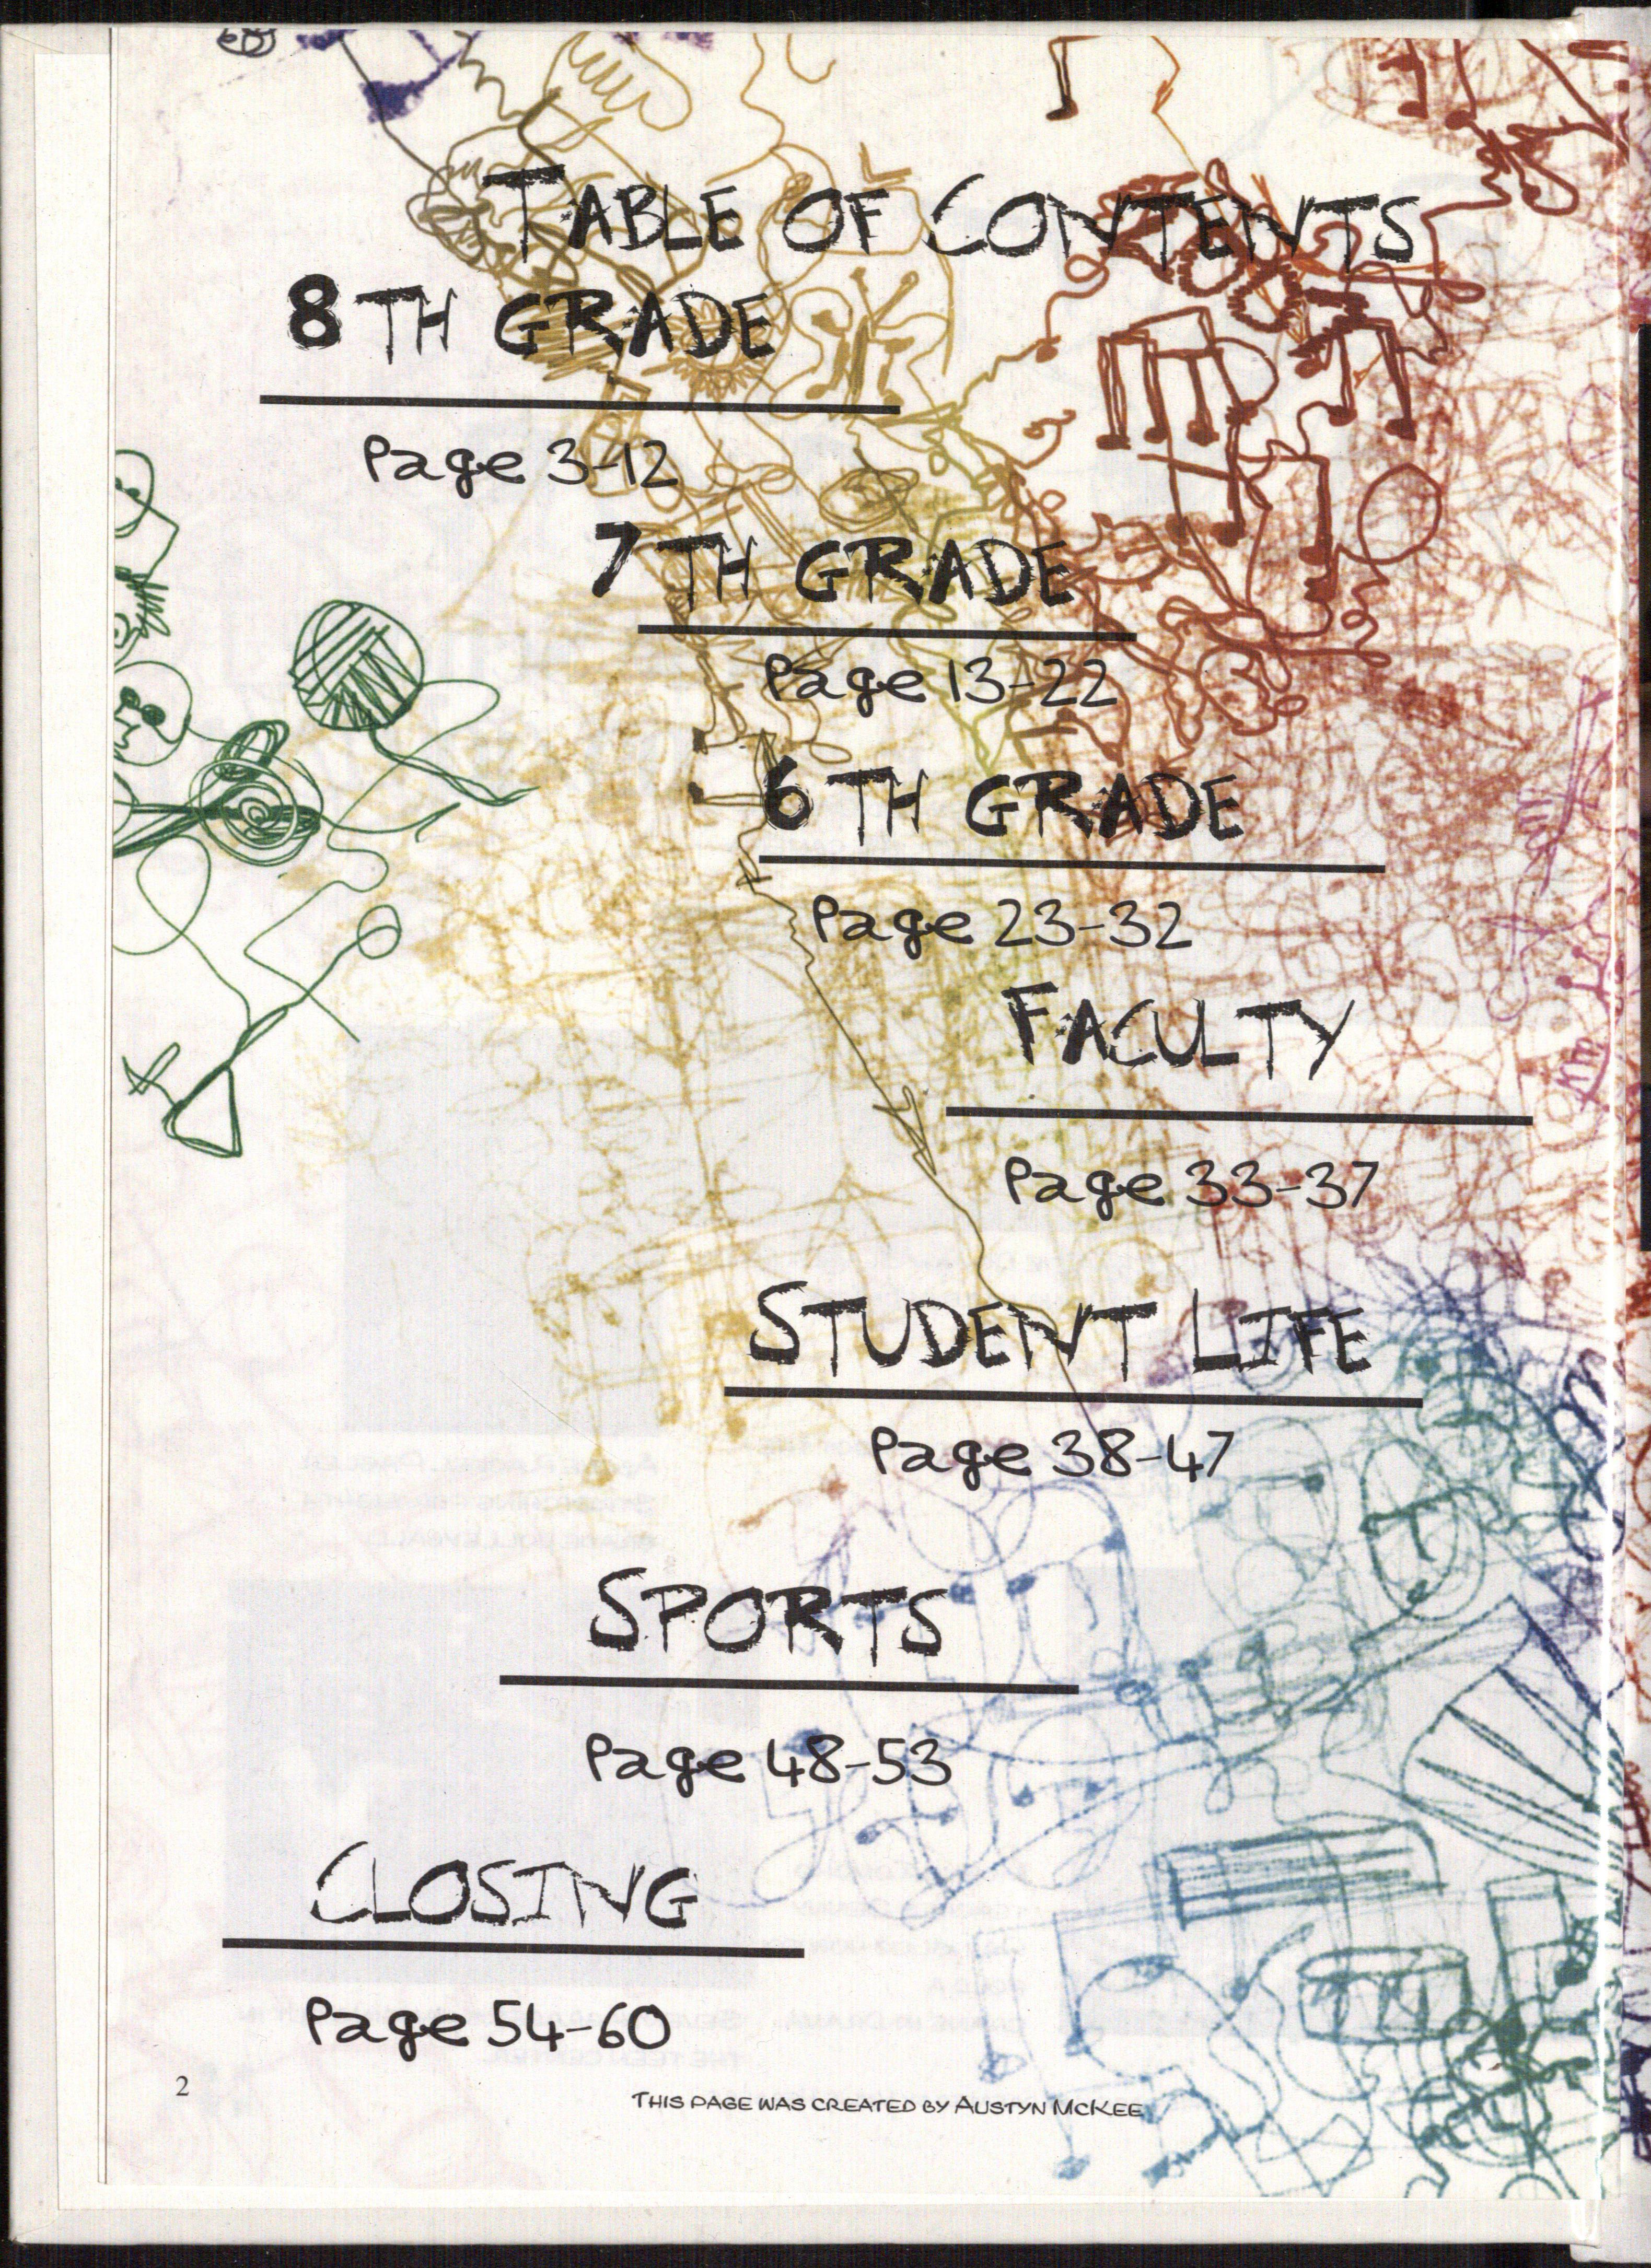 TABLE OF CONTENTS
8TH GRADE
Page 3-12
7TH GRADE
Page 13-22
6TH GRADE
Page 23-32
FACULTY
Page 33-37
STUDENT LIFE
Page 38-47
SPORTS
Page 48-53
CLOSING
Page 54-60
2
THIS PAGE WAS CREATED BY AUSTYN MCKEE